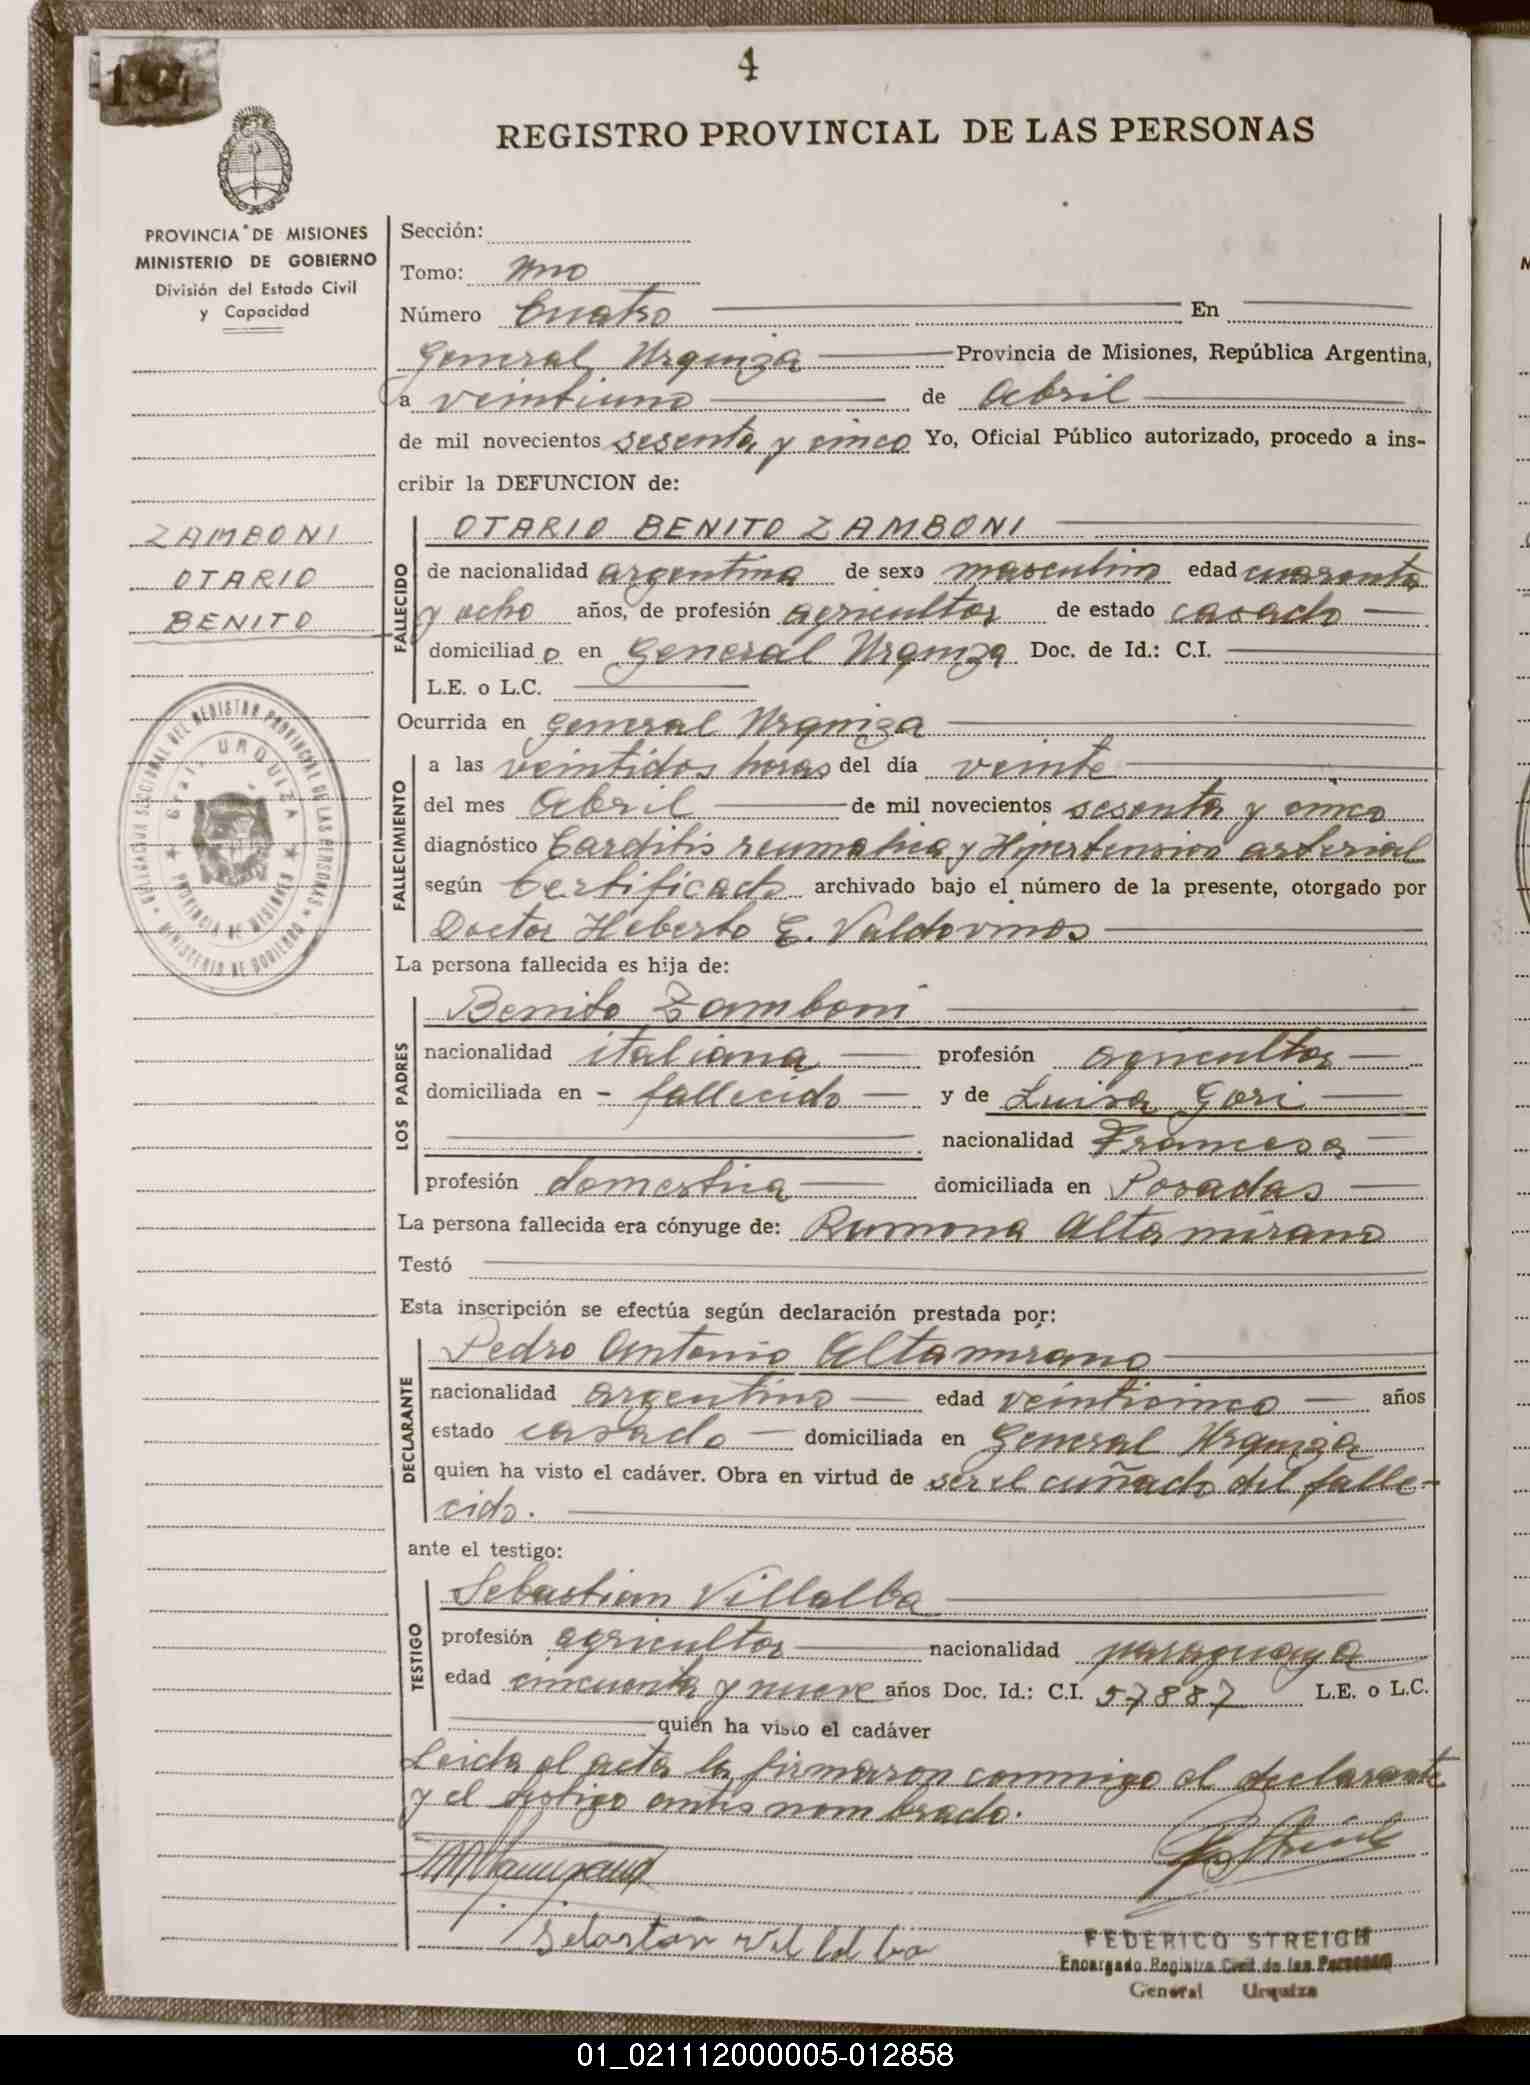 4
REGISTRO PROVINCIAL DE LAS PERSONAS
PROVINCIA DE MISIONES
MINISTERIO DE GOBIERNO
División del Estado Civil
y Capacidad
ZAMBONI
OTARIO
BENITO
Gral. URQUIZA
PROVINCIA DE MISIONES
MINISTERIO DE GOBIERNO
Sección:
Tomo: Uno
Número Cuatro En
General Urquiza Provincia de Misiones, República Argentina,
a veintiuno de Abril
de mil novecientos sesenta y cinco Yo, Oficial Público autorizado, procedo a ins-
cribir la DEFUNCION de:
FALLECIDO
OTARIO BENITO ZAMBONI
de nacionalidad argentina de sexo masculino edad cuarenta
y ocho años, de profesión agricultor de estado casado
domiciliado en General Urquiza Doc. de Id.: C.I.
L.E. o L.C.
Ocurrida en General Urquiza
FALLECIMIENTO
a las veintidos horas del día veinte
del mes Abril de mil novecientos sesenta y cinco
diagnóstico Carditis reumatica y Hipertension arterial
según Certificado archivado bajo el número de la presente, otorgado por
Doctor Heberto E. Valdovinos
La persona fallecida es hija de:
LOS PADRES
Benito Zamboni
nacionalidad italiana profesión agricultor
domiciliada en - fallecido y de Luisa Gori
nacionalidad Francesa
profesión domestica domiciliada en Posadas
La persona fallecida era cónyuge de: Rumona Altamirano
Testó
Esta inscripción se efectúa según declaración prestada por:
DECLARANTE
Pedro Antonio Altamirano
nacionalidad argentino edad veinticinco años
estado casado domiciliada en General Urquiza
quien ha visto el cadáver. Obra en virtud de ser el cuñado del falle-
cido.
ante el testigo:
TESTIGO
Sebastian Villalba
profesión agricultor nacionalidad paraguaya
edad cincuenta y nueve años Doc. Id.: C.I. 57887 L.E. o L.C.
quien ha visto el cadáver
Leida el acta la firmaron conmigo el declarante
y el testigo antes nombrado.
FEDERICO STREICH
Encargado Registro Civil de las Personas
General Urquiza
01_021112000005-012858